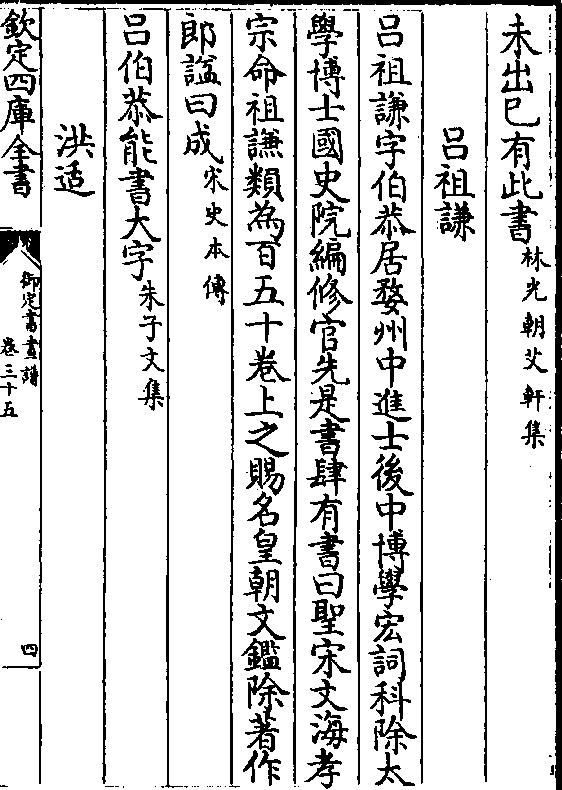 未出已有此書林光朝艾軒集
呂祖謙
呂祖謙字伯恭居婺州中進士後中博學宏詞科除太
學博士國史院編修官先是書肆有書曰聖宋文海孝
宗命祖謙類為百五十卷上之賜名皇朝文鑑除著作
郎諡曰成宋史本傳
呂伯恭能書大字朱子文集
洪适
欽定四庫全書
御定書畫譜
卷三十五
四